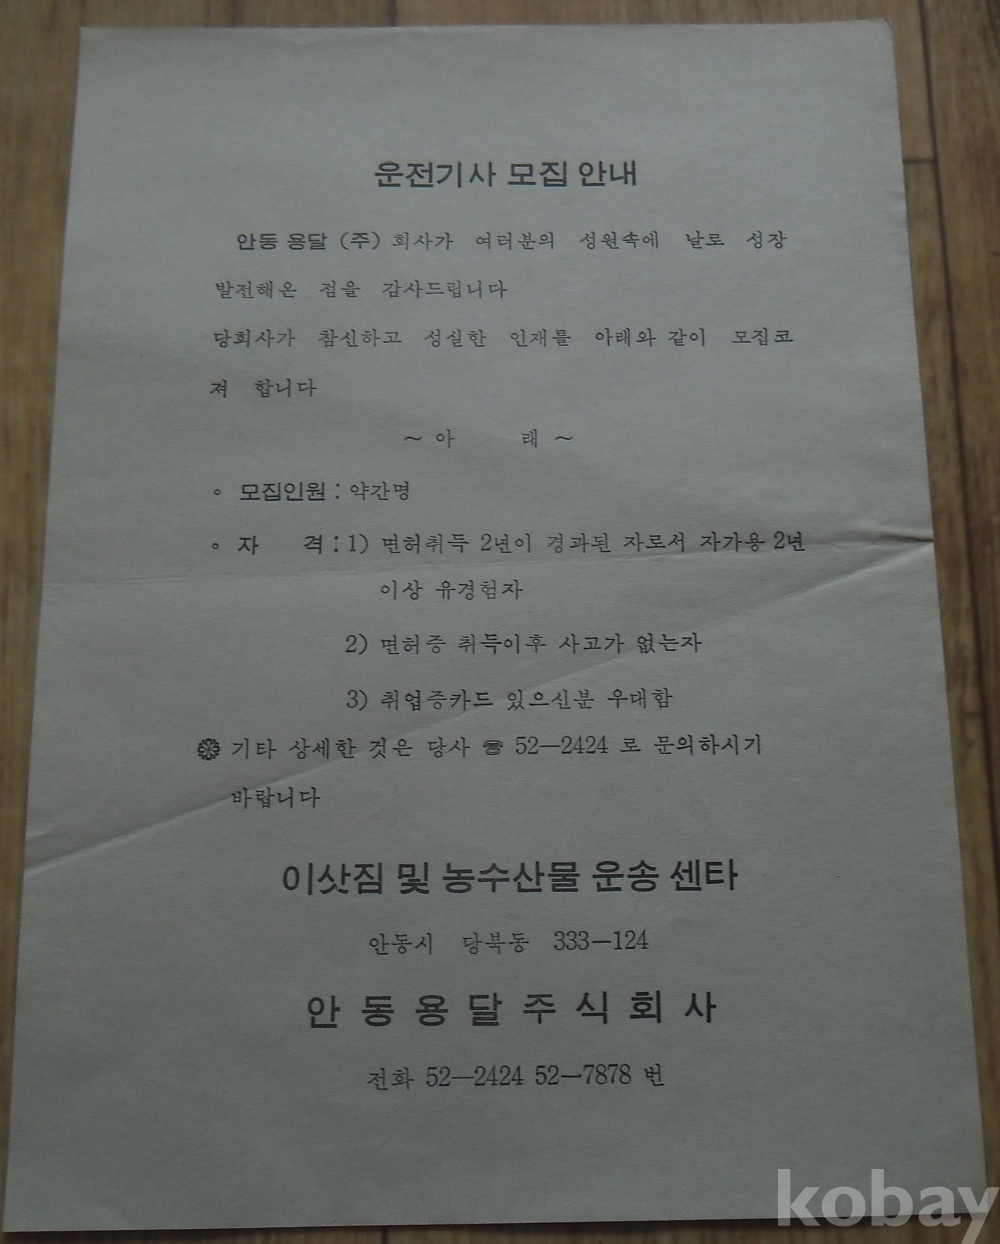 운전기사 모집 안내
안동 용달 (주) 회사가 여러분의 성원속에 날로 성장
발전해온 점을 감사드립니다
당회사가 참신하고 성실한 인재를 아래와 같이 모집코
져 합니다
~ 아 래 ~
◦ 모집인원 : 약간명
◦ 자 격 : 1) 면허취득 2년이 경과된 자로서 자가용 2년
이상 유경험자
2) 면허증 취득이후 사고가 없는자
3) 취업증카드 있으신분 우대함
❁ 기타 상세한 것은 당사 ☎ 52—2424 로 문의하시기
바랍니다
이삿짐 및 농수산물 운송 센타
안동시 당북동 333—124
안동용달주식회사
전화 52—2424 52—7878 번
kobay